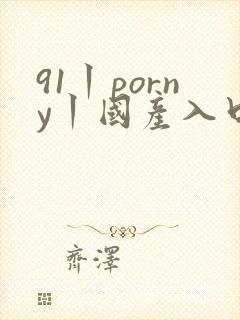 91丨porn
y丨國產入口
齊澤